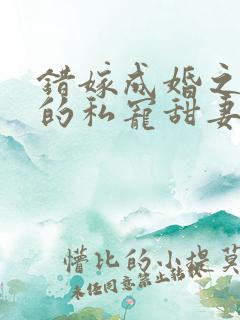 错嫁成婚之
的私宠甜妻
懵比的小提莫
未经同意禁止转载